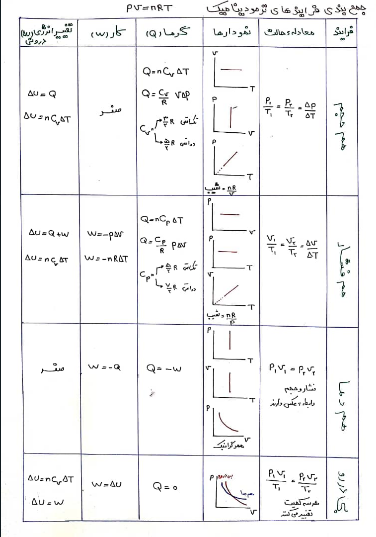 جمع بندی فرایندهای ترمودینامیک PV=nRT
فرایند معادله حالت نمودارها گرما(Q) کار(W) تغییر انرژی درونی
هم حجم
P₁/T₁ = P₂/T₂ = ΔP/ΔT
V T
P V
P T
شیب = nR/V
Q=nCᵥΔT
Q= Cᵥ/R VΔP
Cᵥ= تک اتمی ۳/۲ R
دو اتمی ۵/۲ R
صفر
ΔU=Q
ΔU=nCᵥΔT
هم فشار
V₁/T₁ = V₂/T₂ = ΔV/ΔT
P T
P V
V T
شیب = nR/P
Q=nCₚΔT
Q= Cₚ/R PΔV
Cₚ= تک اتمی ۵/۲ R
دو اتمی ۷/۲ R
W=-PΔV
W=-nRΔT
ΔU=Q+W
ΔU=nCᵥΔT
هم دما
P₁V₁=P₂V₂
فشار و حجم
رابطه عکس دارند
P T
V T
P V
Q=-W
W=-Q
صفر
بی دررو
P₁V₁/T₁ = P₂V₂/T₂
هر سه کمیت
تغییر می کنند
P V
هم دما
Q=0
W=ΔU
ΔU=nCᵥΔT
ΔU=W